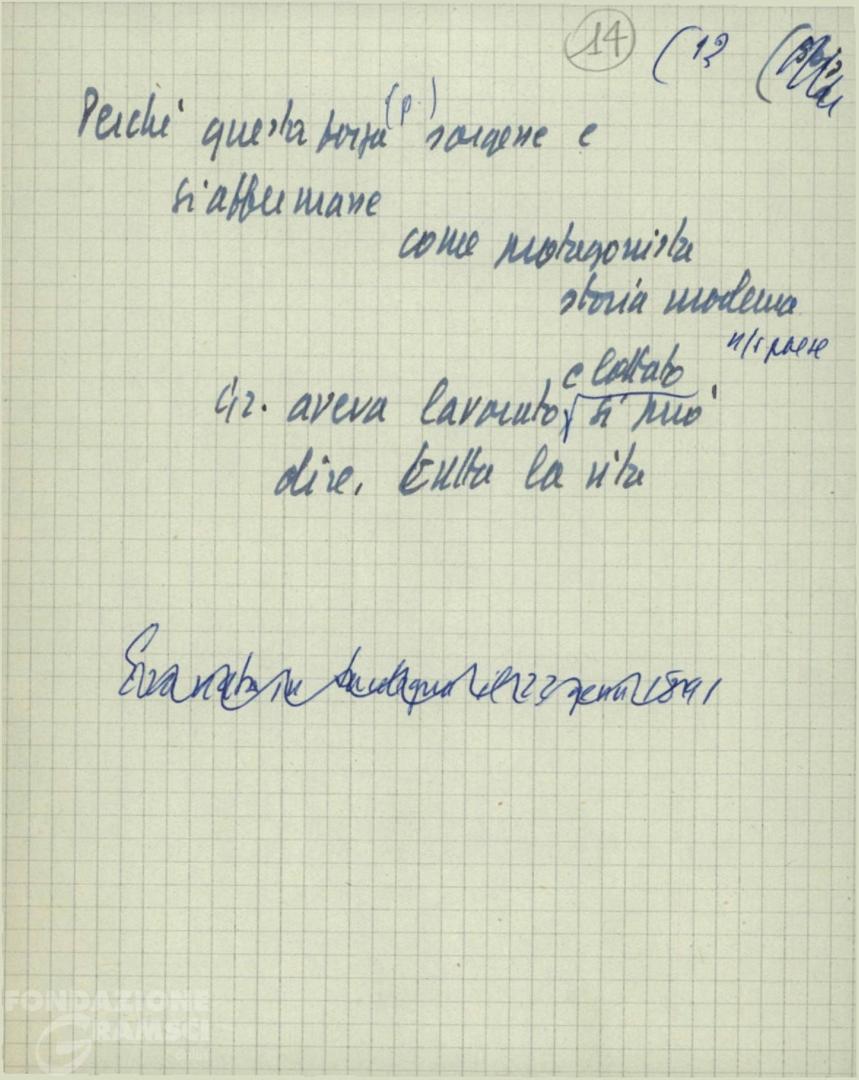 14 (12 (
Perché questa forza (p.) sorgesse e
si affermasse
come protagonista
storia moderna
n/s paese
e lottato
Gr. aveva lavorato, si può
dire, tutta la vita
Era nato in Sardegna il 22 genn 1891
FONDAZIONE
GRAMSCI